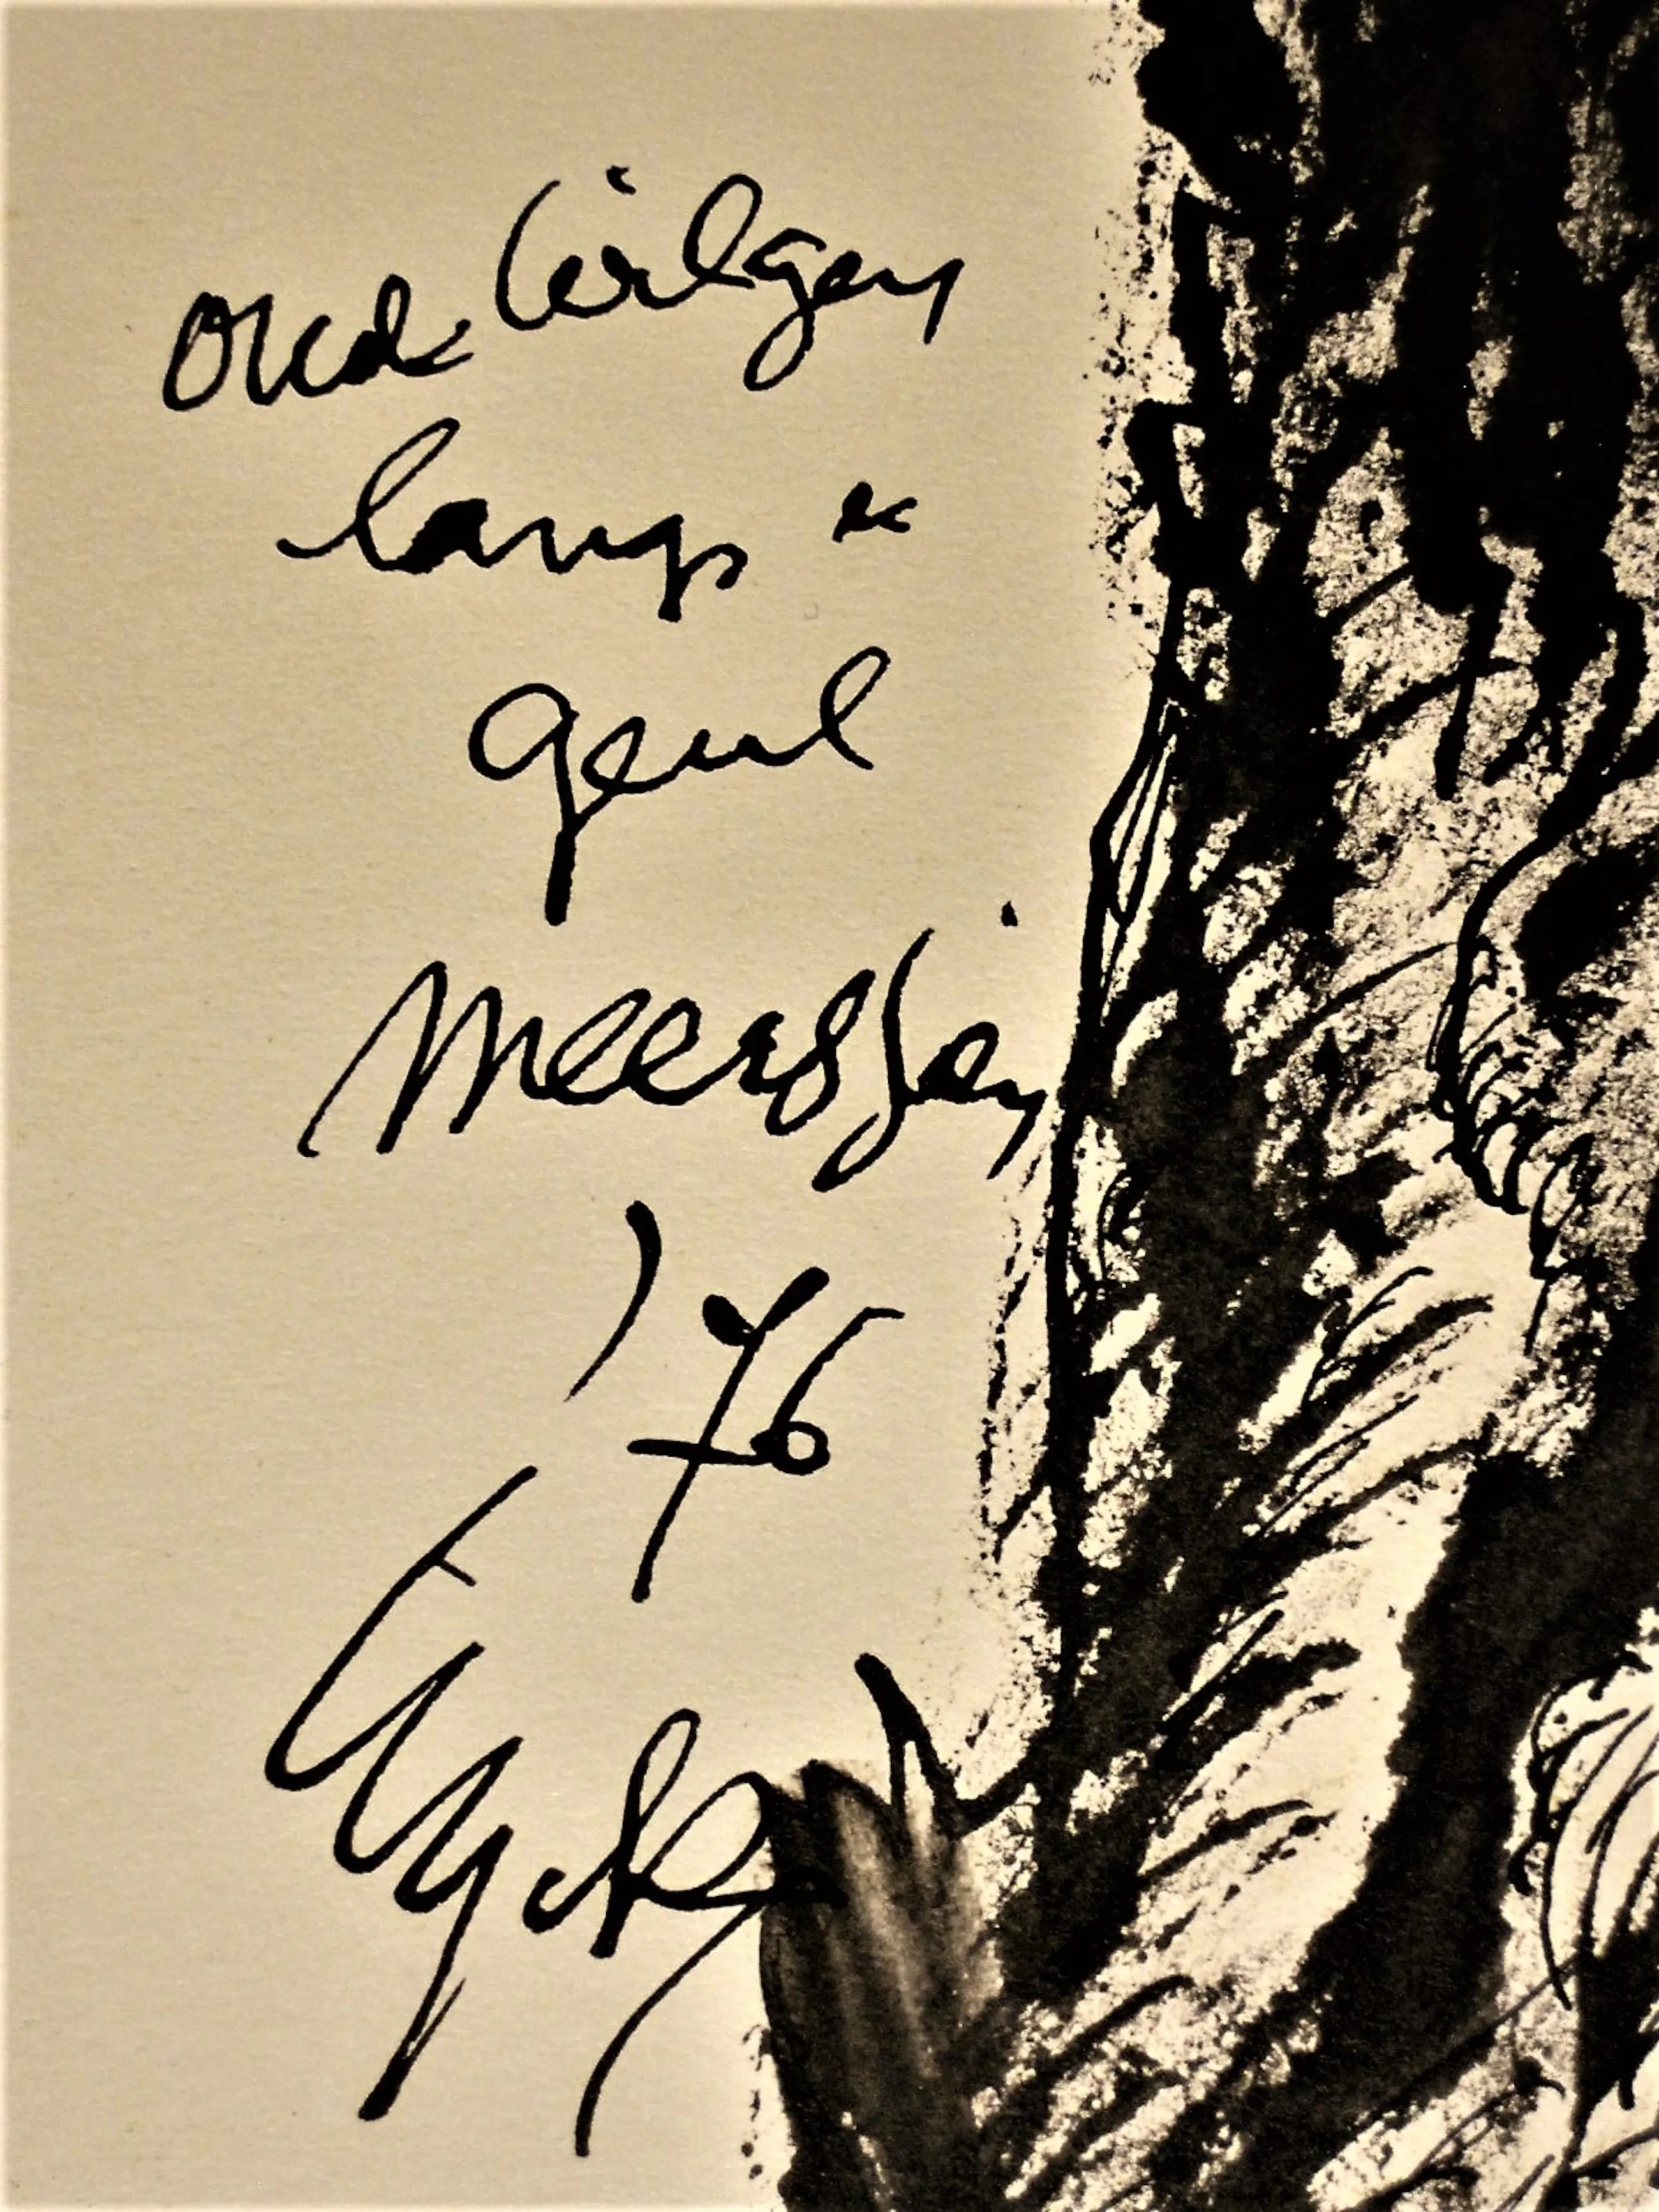 oude wilgen
langs de
geul
meerssen
'76